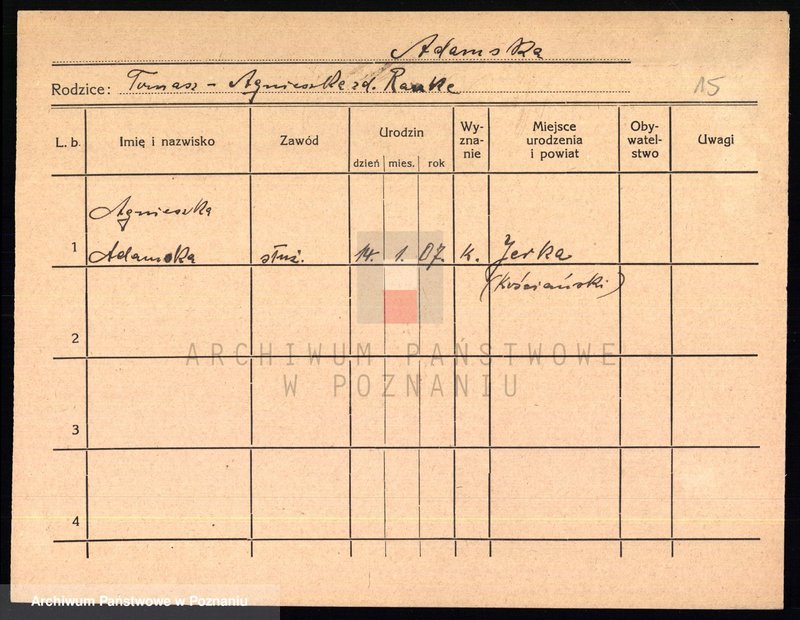 Adamska
Rodzice: Tomasz - Agnieszka zd. Ranke
15
L. b.
Imię i nazwisko
Zawód
Urodzin
dzień
mies.
rok
Wy-
zna-
nie
Miejsce
urodzenia
i powiat
Oby-
watel-
stwo
Uwagi
Agnieszka
1 Adamska służ. 14. 1. 07. k. Jerka
(Kościański)
2
ARCHIWUM PAŃSTWOWE
W POZNANIU
3
4
Archiwum Państwowe w Poznaniu